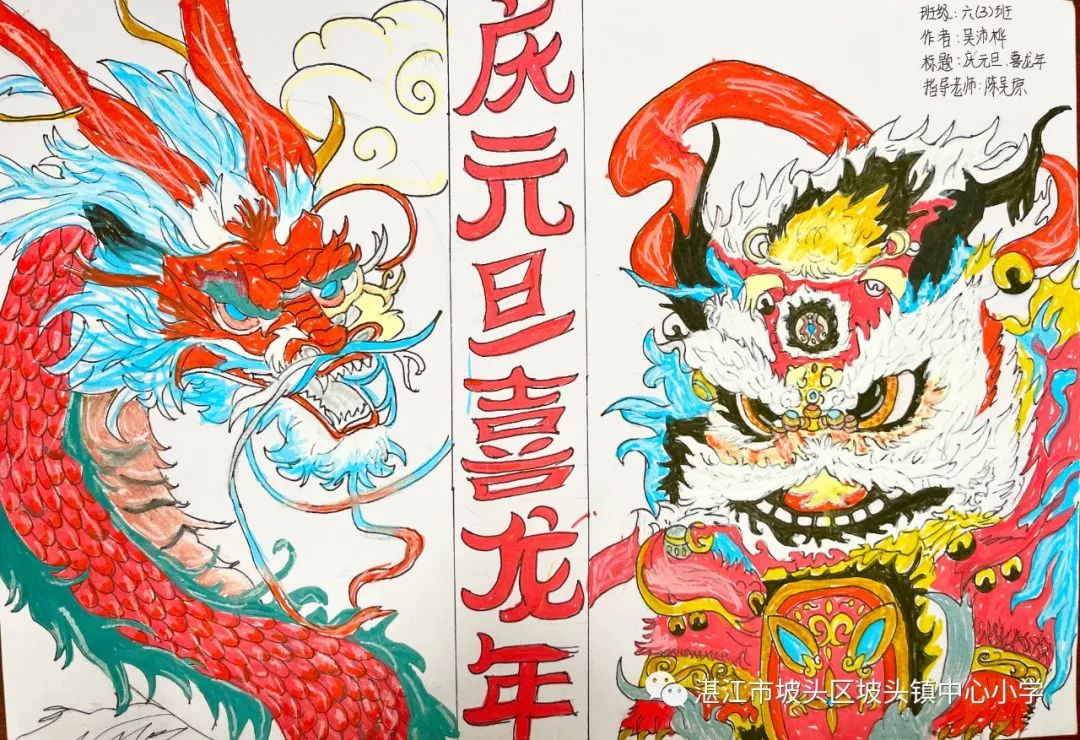 庆元旦喜龙年
班级：六(3)班
作者：吴沛桦
标题：庆元旦.喜龙年
指导老师：陈吴琼
湛江市坡头区坡头镇中心小学